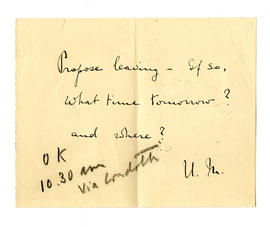 Propose leaving - If so,
What time tomorrow?
and where?
U. M.
OK
10.30 am
Via